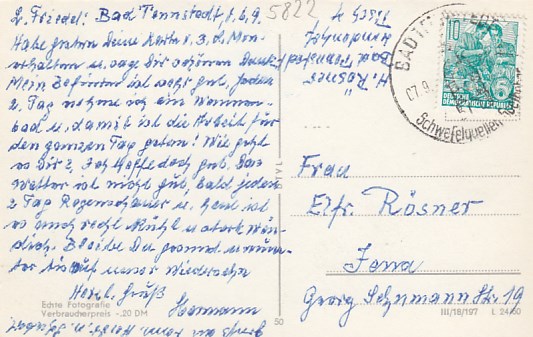 L. Friedel! Bad Tennstedt, 6. 9.
5822
Habe gestern Deine Karte v. 3. d. Mon.
erhalten u. sage Dir schönen Dank!
Mein Befinden ist sehr gut, jeden
2. Tag nehme ich ein Wannen-
bad u. damit ist die Arbeit für
den ganzen Tag getan! Wie geht
es Dir? Ich hoffe doch gut. Das
Wetter ist nicht gut, bald jeden
2. Tag Regenschauer u. heut ist
es auch recht kühl u. stark win-
dig. Bleibe Du gesund u. mun-
ter bis auf unser Wiedersehn
Herzl. Grüß
Hermann
Echte Fotografie
Verbraucherpreis -.20 DM
50
H. Rösner
Bad Tennstedt
BAD TENNSTEDT
07.9.
Schwefelquellen
10
DEUTSCHE
DEMOKRATISCHE REPUBLIK
Frau
Elfr. Rösner
Jena
Georg Schumann Str. 19
III/18/197 L 24/60